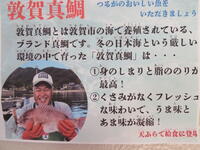 敦賀真鯛
つるがのおいしい魚を
いただきましょう
敦賀真鯛とは敦賀市の海で養殖されている、
ブランド真鯛です。冬の日本海という厳しい
環境の中で育った「敦賀真鯛」は・・・
①身のしまりと脂ののりが
最高！
②くさみがなくフレッシュ
な味わいで、うま味と
あま味が凝縮！
天ぷらで給食に登場